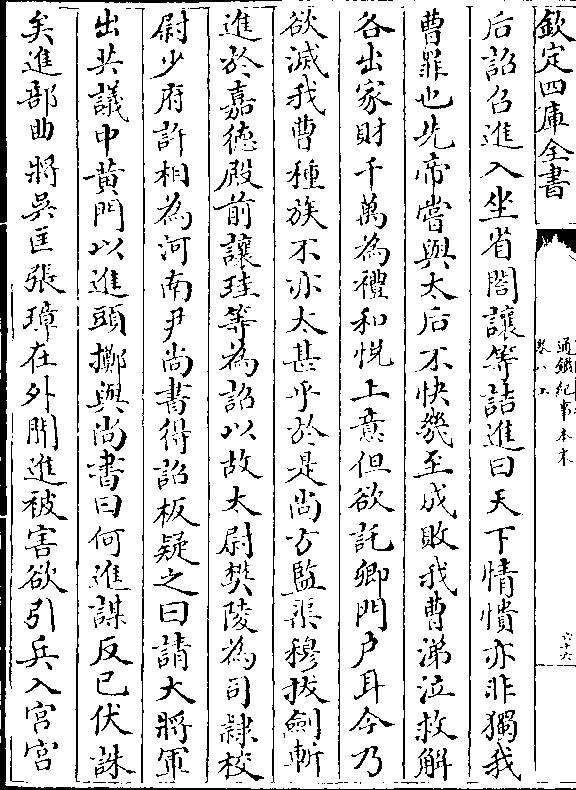 欽定四庫全書
通鑑紀事本末
卷八上
六十六
后詔召進入坐省閤讓等詰進曰天下憒憒亦非獨我
曹罪也先帝嘗與太后不快幾至成敗我曹涕泣救解
各出家財千萬為禮和悅上意但欲託卿門户耳今乃
欲滅我曹種族不亦太甚乎於是尚方監渠穆拔劍斬
進於嘉徳殿前讓珪等為詔以故太尉樊陵為司隷校
尉少府許相為河南尹尚書得詔板疑之曰請大將軍
出共議中黄門以進頭擲與尚書曰何進謀反已伏誅
矣進部曲將吳匡張璋在外聞進被害欲引兵入宫宫